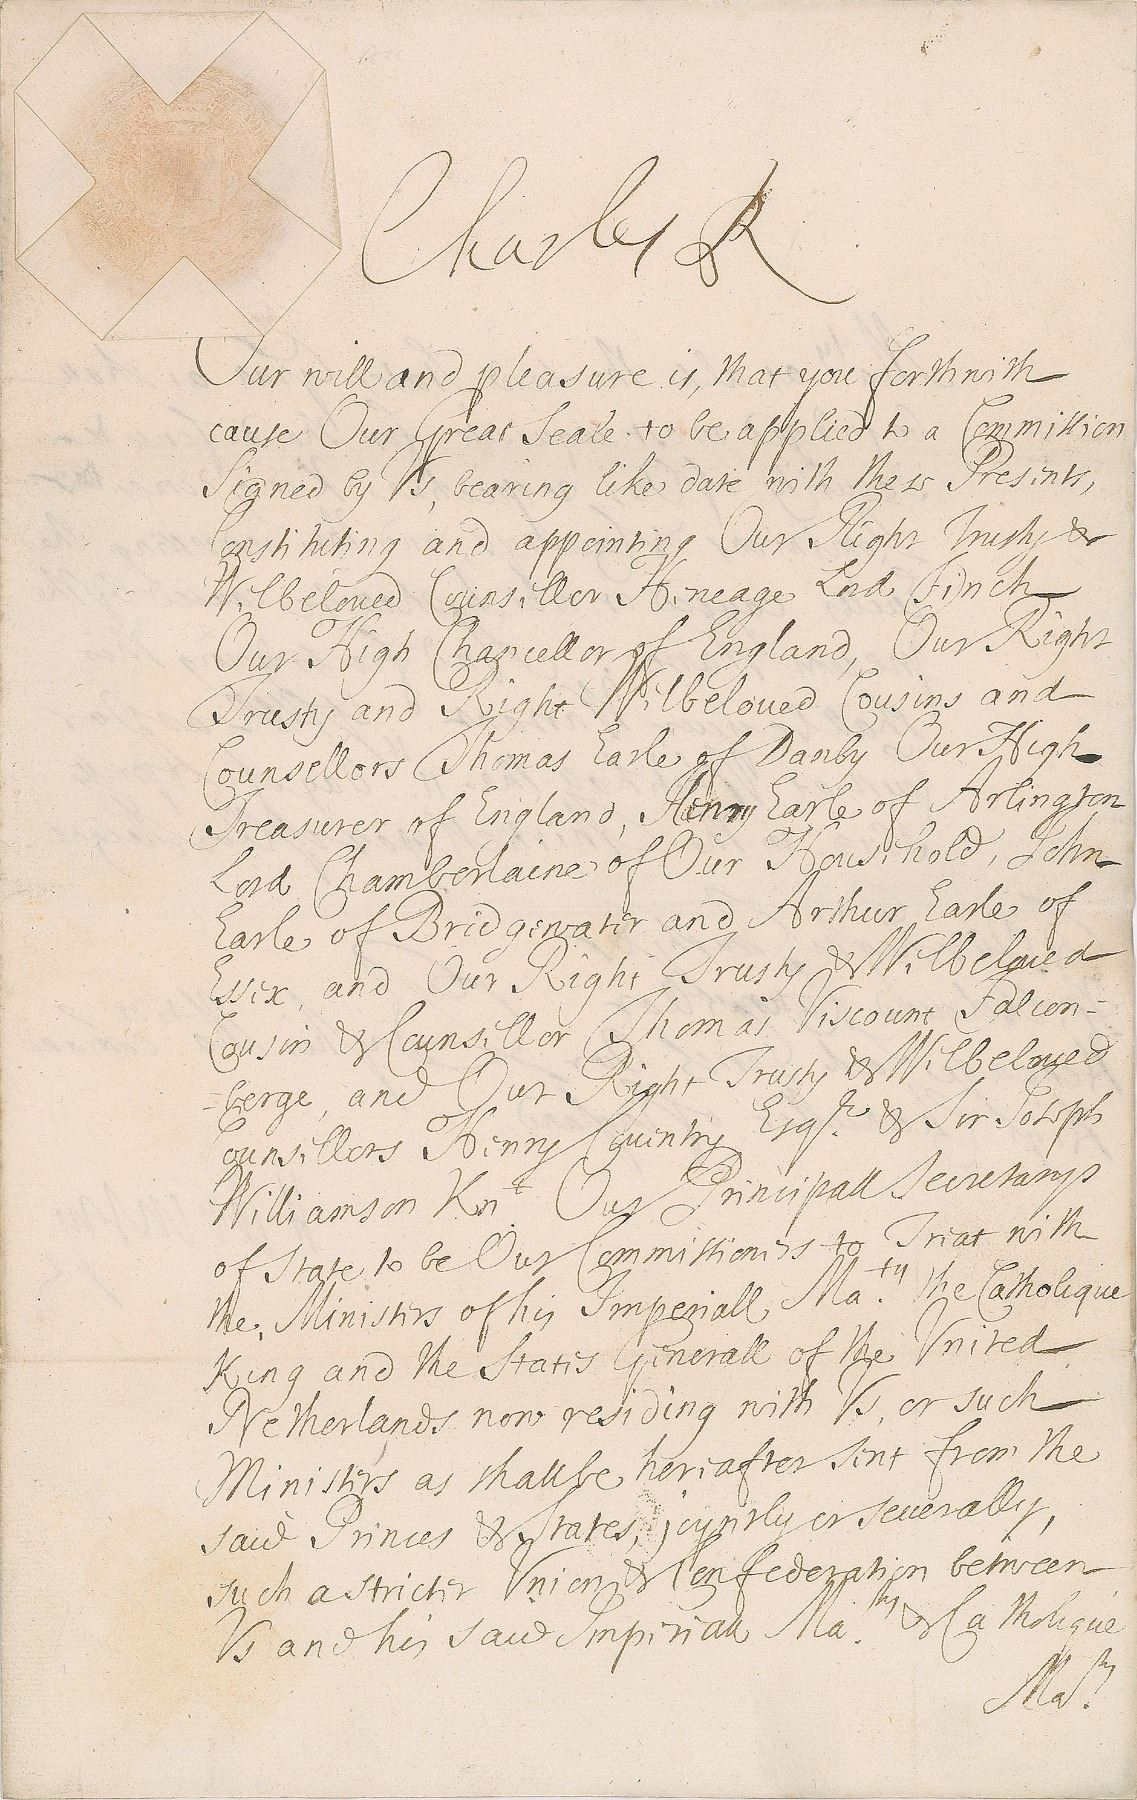 Charles R
Our will and pleasure is, that you forthwith
cause Our Great Seale to be applied to a Commission
signed by Vs, bearing like date with these Presents,
Constituting and appointing Our Right Trusty &
Welbeloued Counsellor Heneage Lord Finch
Our High Chancellor of England, Our Right
Trusty and Right Welbeloued Cousins and
Counsellors Thomas Earle of Danby Our High
Treasurer of England, Henry Earle of Arlington
Lord Chamberlaine of Our Household, John
Earle of Bridgewater and Arthur Earle of
Essex, and Our Right Trusty & Welbeloued
Cousin & Counsellor Thomas Viscount Falcon=
=berge, and Our Right Trusty & Welbeloued
Counsellors Henry Couentry Esqr. & Sir Joseph
Williamson Knt. Our Principall Secretarys
of State to be Our Commissioners to Treat with
the Ministers of his Imperiall Ma.ty the Catholique
King and the States Generall of the Vnited
Netherlands now residing with Vs, or such
Ministers as shall be hereafter sent from the
said Princes & States, joyntly or seuerally,
such a stricter Vnion & Confederation between
Vs and his said Imperiall Ma.ty & Catholique
Ma.ty